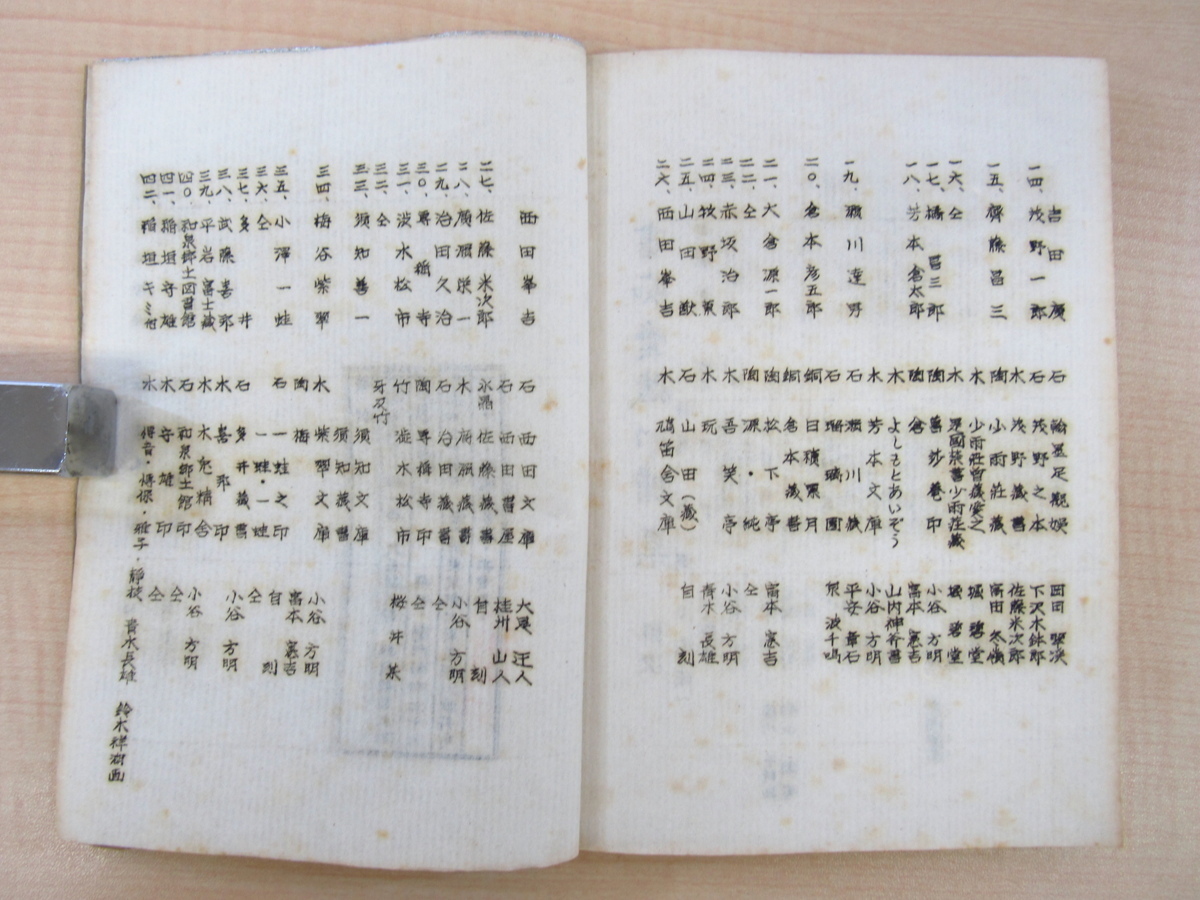 吉田 廣 石 飽墨足観娯 岡田 翠渓
一四、浅野一郎 石 浅野之本 下沢木鉢郎
水 浅野蔵書 佐藤米次郎
一五、齋藤昌三 陶 小雨荘蔵 富田 冬嶺
木 少雨荘曾蔵愛之 堀 碧堂
一六、仝 木 是國禁書少雨荘蔵 堀 碧堂
一七、橘 冨三郎 陶 萬莎巻印 小谷 方明
一八、芳本倉太郎 陶 倉 富本 憲吉
木 よしもとあいぞう 山内神斧書
木 芳本文庫 小谷 方明
一九、瀬川達男 石 瀬川蔵 平安 華石
石 珊璃園 泉 波千鳴
二〇、倉本彦五郎 銅 日積累月
銅 倉本蔵書
二一、大倉源一郎 陶 松下亭 富本 憲吉
二二、仝 陶 源・純 仝
二三、赤坂治郎 木 吾笑亭 小谷 方明
二四、牧野 木 玩 青木 長雄
二五、山田 獣 石 山田(蔵) 自 刻
二六、西田峯吉 木 鴻笛舎文庫
西田峯吉 石 西田文庫 大尾 迂人
石 西田書屋 桂川 山人
二七、佐藤米次郎 水晶 佐藤蔵書 自 刻
二八、廣瀬栄一 木 廣瀬蔵書 小谷 方明
二九、治田久治 石 治田蔵書 仝
三〇、專稱寺 陶 專稱寺印 仝
三一、波水松市 竹 波水松市 桜井 某
三二、仝 牙及竹
三三、須知善一 須知文庫
須知蔵書
三四、梅谷紫翠 木 紫翠文庫 小谷 方明
陶 梅 富本 憲吉
三五、小澤一蛙 石 一蛙之印 自 刻
三六、仝 一蛙・一蛙 仝
三七、多 井 石 多井蔵書
三八、武藤喜郎 木 喜郎印 小谷 方明
三九、平岩富士蔵 木 木兔精舎
四〇、和泉郷土図書館 石 和泉郷土館印 小谷 方明
四一、稲垣守雄 木 守雄印 仝
四二、稲垣キミ世 木 得音・博保・雅子・靜枝 仝 青木長雄 鈴木禅洞画